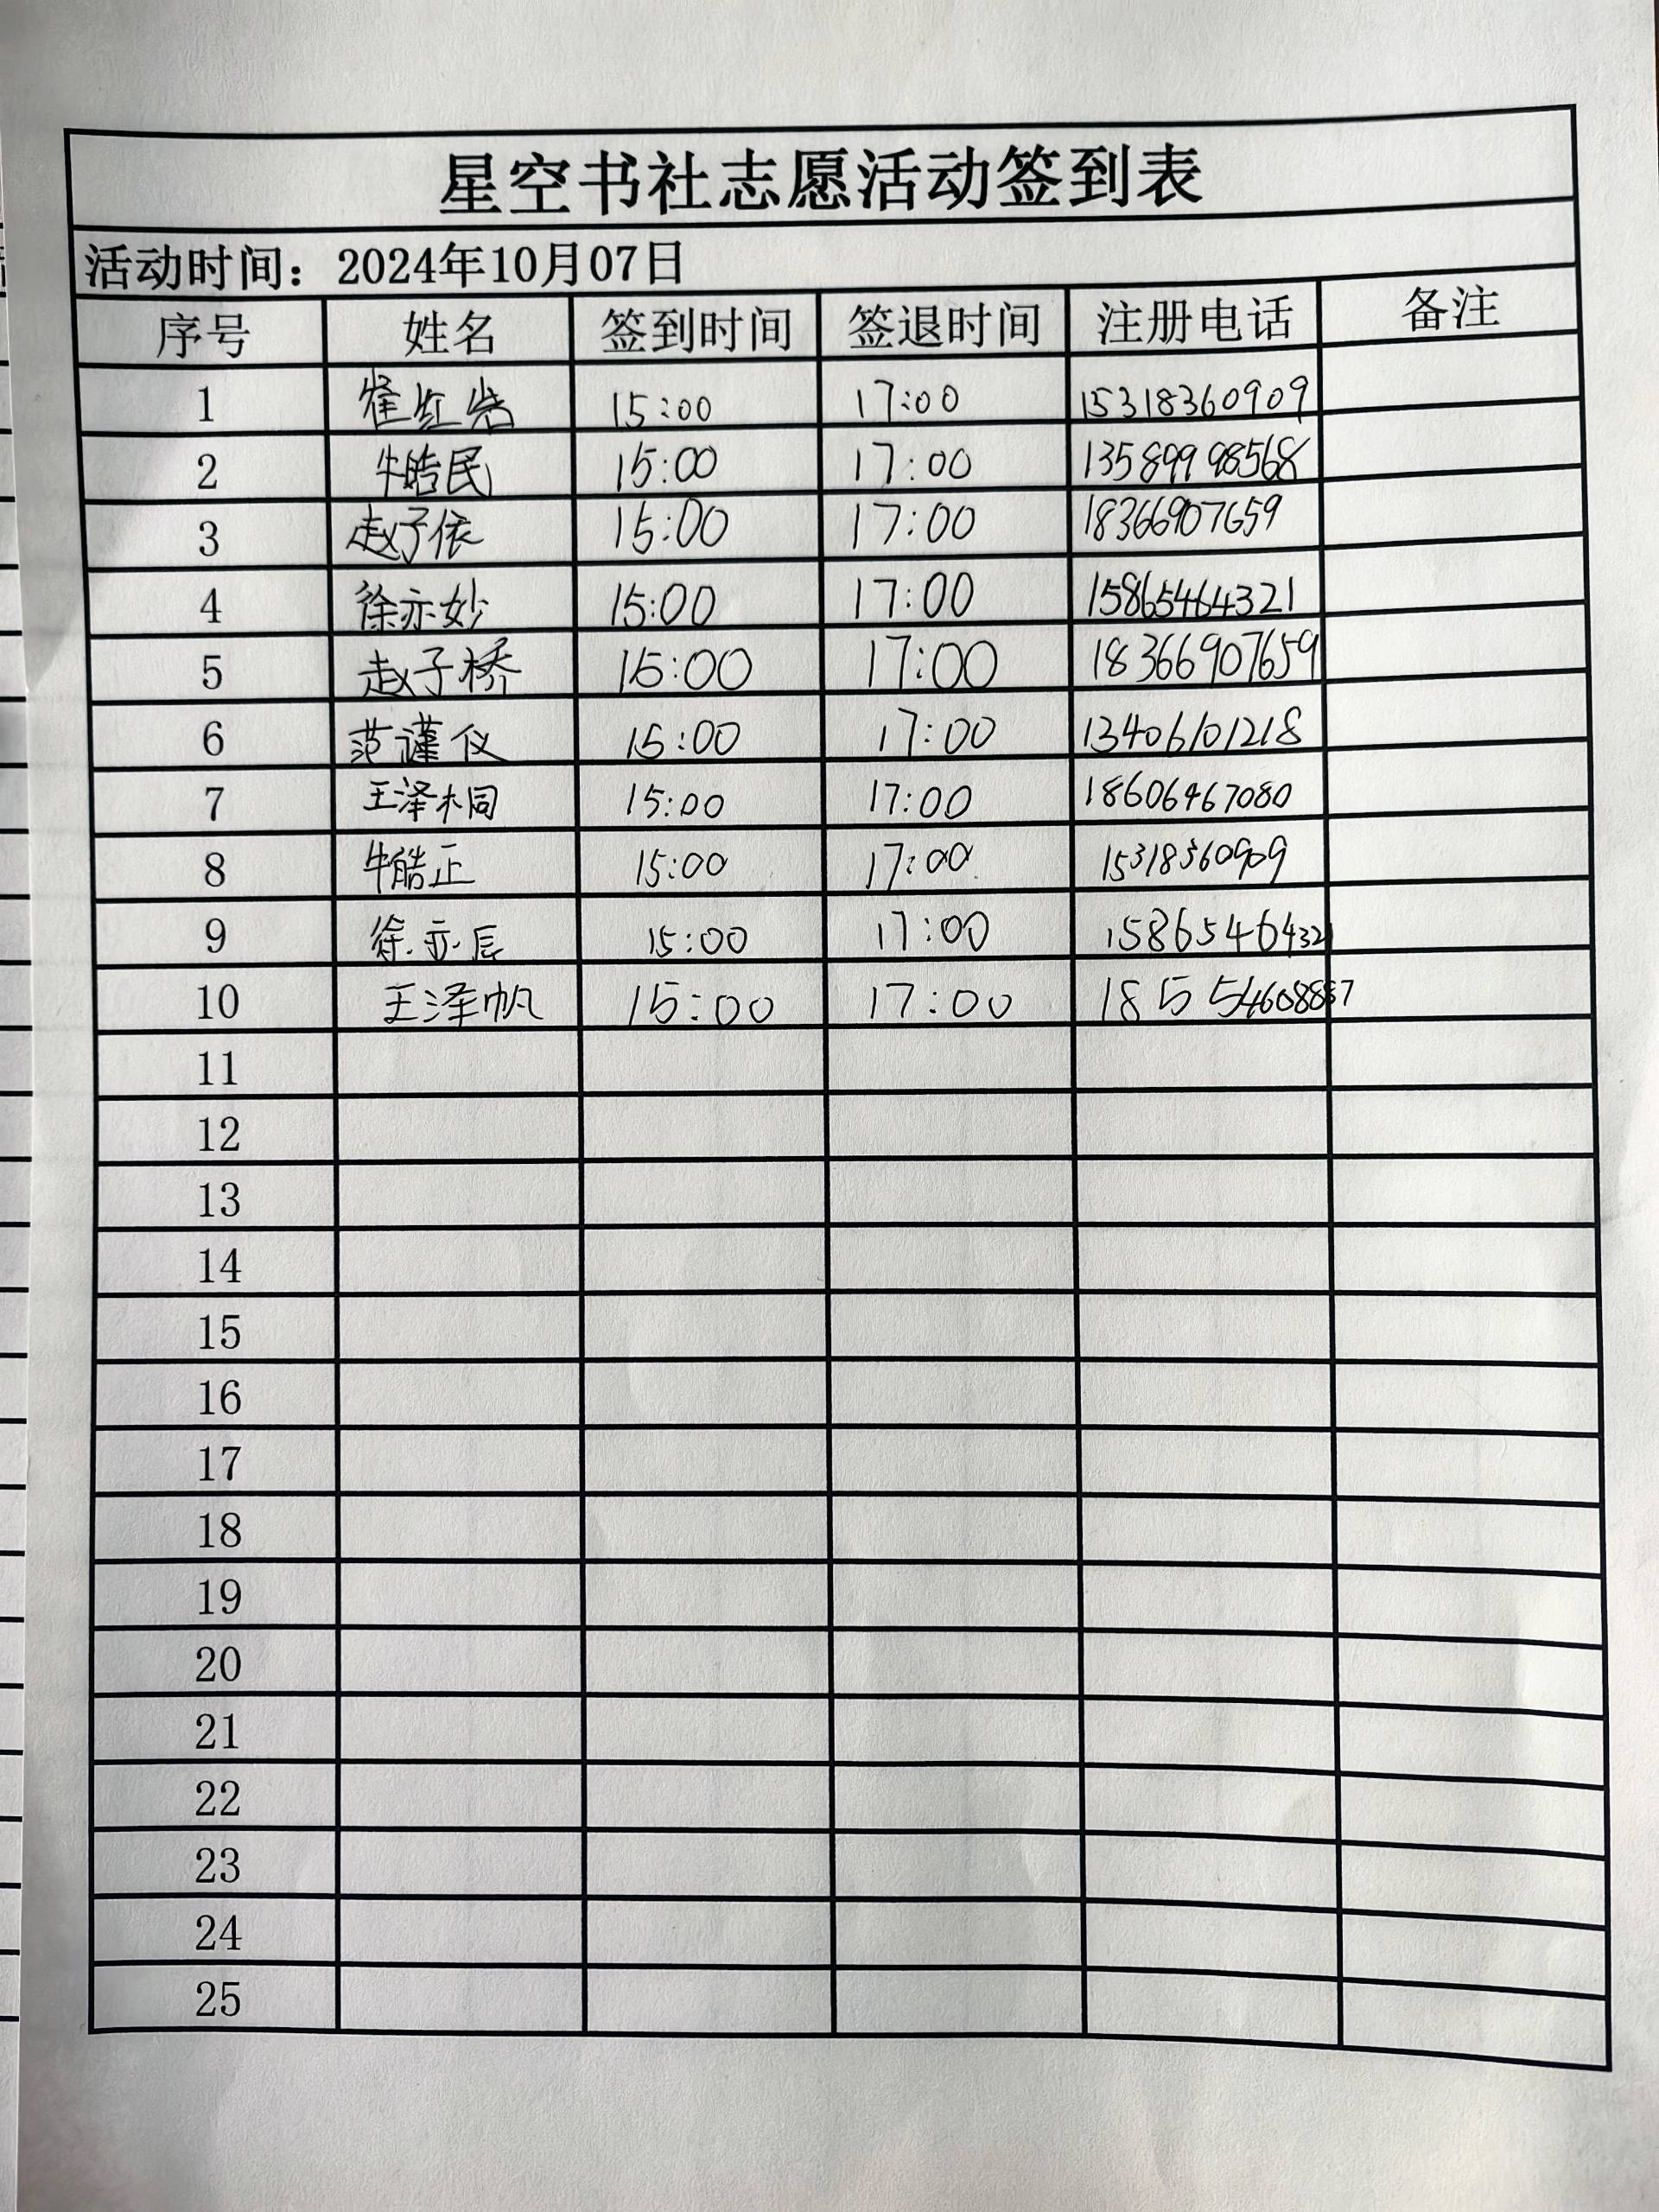 星空书社志愿活动签到表
活动时间：2024年10月07日
序号 姓名 签到时间 签退时间 注册电话 备注
1 崔红岩 15:00 17:00 15318360909
2 牛皓民 15:00 17:00 13589998568
3 赵子依 15:00 17:00 18366907659
4 徐亦妙 15:00 17:00 15865464321
5 赵子桥 15:00 17:00 18366907659
6 范谨仪 15:00 17:00 13406101218
7 王泽桐 15:00 17:00 18606467080
8 牛皓正 15:00 17:00 15318360909
9 徐亦辰 15:00 17:00 15865464321
10 王泽帆 15:00 17:00
11
12
13
14
15
16
17
18
19
20
21
22
23
24
25